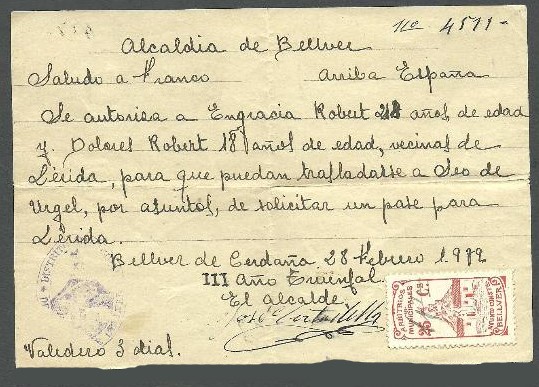 Nº 4511-
Alcaldia de Bellver
Saludo a Franco Arriba España
Se autorisa a Engracia Robert 21 años de edad
y. Dolores Robert 18 años de edad, vecinas de
Lérida, para que puedan trasladarse a Seo de
Urgel, por asuntos, de solicitar un pase para
Lérida.
Bellver de Cerdaña 28 Febrero 1939
III Año Triunfal
El Alcalde
José
Valedero 3 dias.
ARBITRIOS
MUNICIPALES
25 Cs
BELLVER